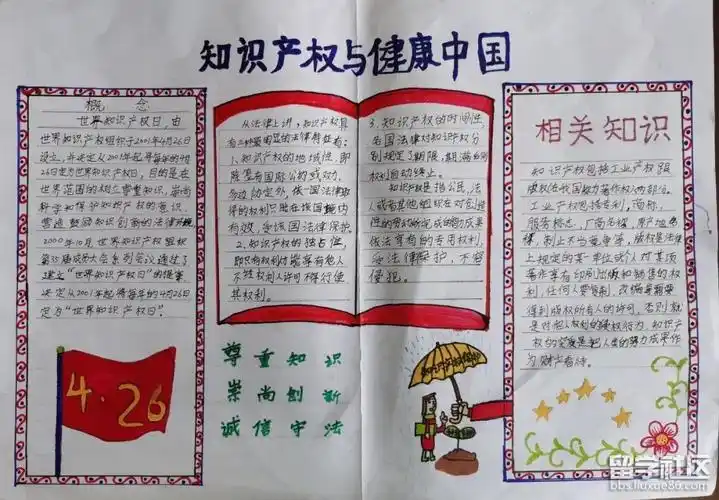 知识产权与健康中国
概 念
世界知识产权日由
世界知识产权组织于2001年4月26日
设立,并决定从2001年起每年的4月
26日定为世界知识产权日,目的是在
世界范围内树立尊重知识,崇尚
科学和保护知识产权的意识
营造鼓励知识创新的法律环境
2000年10月世界知识产权组织
第35届成员大会系列会议通过了
建立“世界知识产权日”的提案
决定从2001年起将每年的4月26日
定为“世界知识产权日”
4·26
从法律上讲,知识产权具
有三种最明显的法律特征:
1、知识产权的地域性,即
除签有国际公约或双、
多边协定外,依一国法律取
得的权利只能在该国境内
有效,受该国法律保护。
2、知识产权的独占性,
即只有权利人才能享有,他人
不经权利人许可不得行使
其权利。
3、知识产权的时间性,
各国法律对知识产权分
别规定了期限,期满后则
权利自动终止。
知识产权是指公民、法
人或者其他组织在对创造
性的劳动所完成的智力成果
依法享有的专用权利,
受法律保护,不容
侵犯。
尊重知识
崇尚创新
诚信守法
相关知识
知识产权包括工业产权跟
版权(在我国称为著作权)两部分。
工业产权包括专利,商标,
服务标志,厂商名称,原产地名
称,制止不当竞争等,版权是法律
上规定的某一单位或个人对某项
著作享有印刷出版和销售的权
利,任何人要复制、改编等都要
得到版权所有人的许可,否则就
是对他人权利的侵权行为,知识产
权的实质是把人类的智力成果作
为财产看待。
留学社区
bbs.liuxue86.com